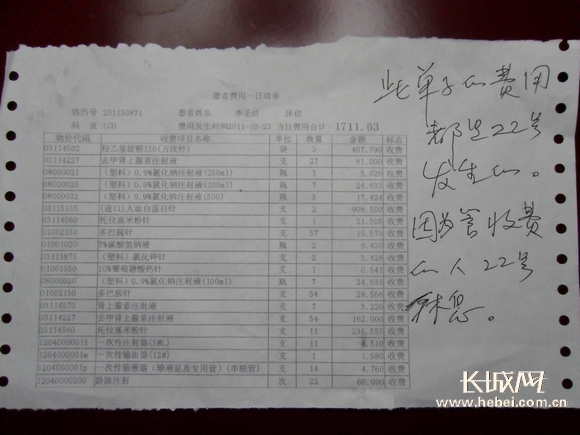 患者费用一日清单
病历号 201110871 患者姓名 床位
科 室 ICU 费用发生时间2011-10-23 当日费用合计 1711.63
物价代码 收费项目名称 单位 数量 金额 标志
03114502 羟乙基淀粉130(万汶针) 袋 3 407.790 收费
03114227 去甲肾上腺素注射液 支 27 81.000 收费
08000021 (塑料)0.9%氯化钠注射液(250ml) 瓶 1 5.026 收费
08000020 (塑料)0.9%氯化钠注射液(100ml) 瓶 7 24.633 收费
08000022 (塑料)0.9%氯化钠注射液(500) 瓶 3 17.424 收费
03115135 (进口)人血白蛋白针 支 2 908.500 收费
03114560 托拉塞米粉针 支 1 21.505 收费
01002130 多巴胺针 支 57 19.573 收费
01001020 5%碳酸氢钠液 瓶 2 9.430 收费
03113873 (塑料)氯化钾针 支 2 3.428 收费
01001030 10%葡萄糖酸钙针 支 1 0.541 收费
08000020 (塑料)0.9%氯化钠注射液(100ml) 瓶 7 24.633 收费
01002130 多巴胺针 支 54 28.566 收费
03114570 肾上腺素注射液 支 7 9.220 收费
03114227 去甲肾上腺素注射液 支 54 162.000 收费
03114560 托拉塞米粉针 支 11 236.555 收费
一次性注射器(5ML) 支 11 收费
一次性输血器(12#) 支 1 1.580 收费
一次性输液器(输液泵及专用管)(串联管) 支 14 4.760 收费
12040000200 静脉注射 次 22 66.000 收费
此单子的费用
都是22号
发生的。
因为管收费
的人22号
休息。
长城网
www.hebei.com.cn